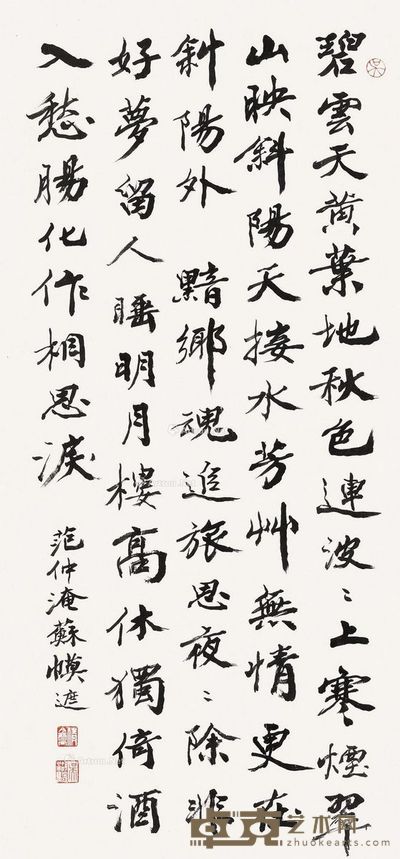 碧雲天黄葉地秋色連波〻上寒煙翠
山映斜陽天接水芳艸無情更在
斜陽外 黯鄉魂追旅思夜〻除非
好夢留人睡明月樓高休獨倚酒
入愁腸化作相思淚
范仲淹蘇幙遮
卓克艺术网
zhuokearts.com